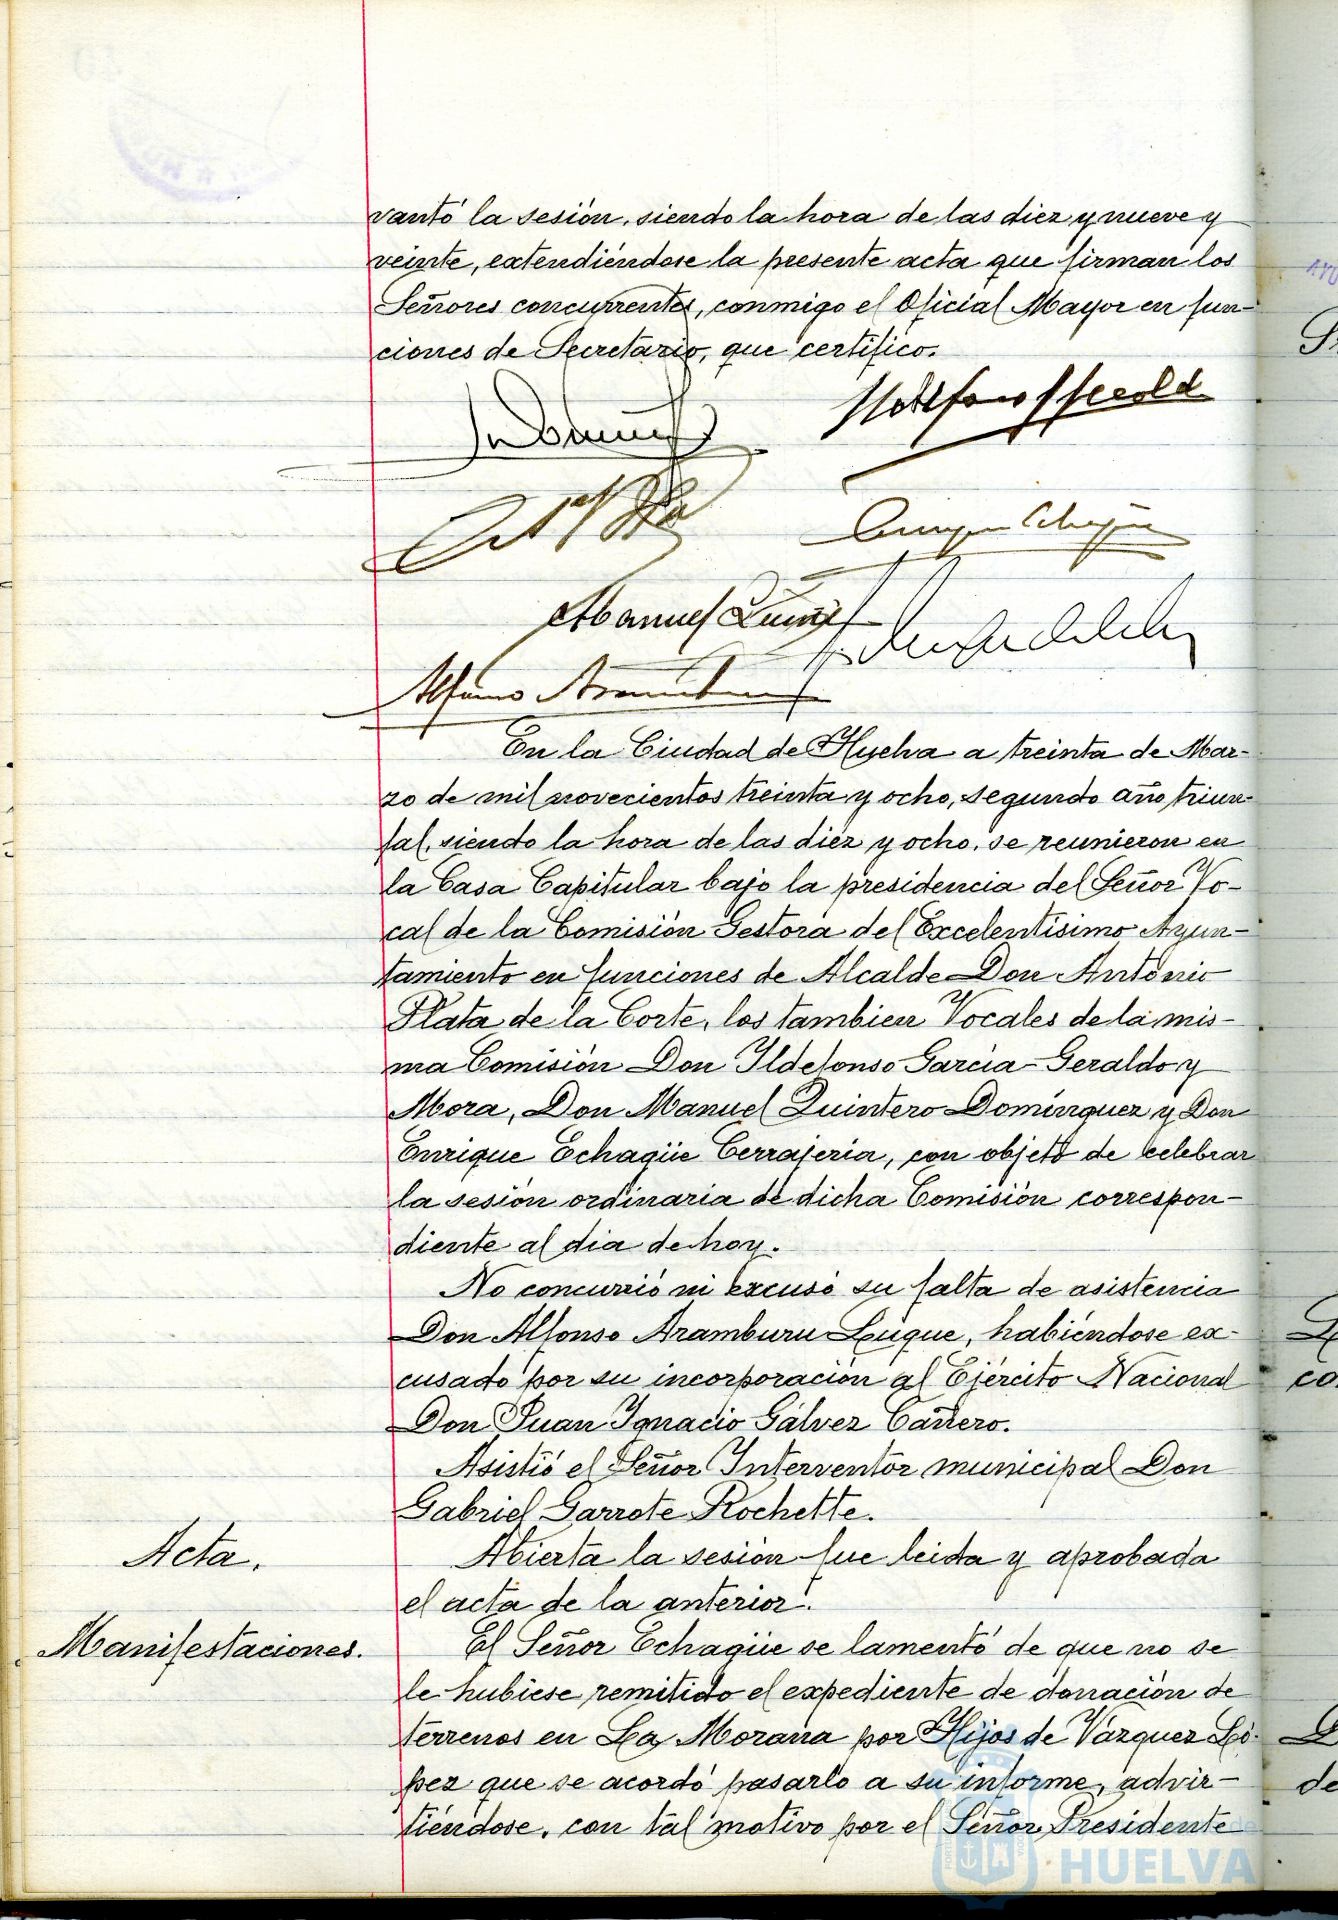 vantó la sesión, siendo la hora de las diez y nueve y
veinte, extendiéndose la presente acta que firman los
Señores concurrentes, conmigo el Oficial Mayor en fun-
ciones de Secretario, que certifico.
Manuel
Alfonso
En la Ciudad de Huelva a treinta de Mar-
zo de mil novecientos treinta y ocho, segundo año triun-
fal, siendo la hora de las diez y ocho, se reunieron en
la Casa Capitular bajo la presidencia del Señor Vo-
cal de la Comisión Gestora del Excelentísimo Ayun-
tamiento en funciones de Alcalde Don Antonio
Plata de la Corte, los tambien Vocales de la mis-
ma Comisión Don Ildefonso García-Geraldo y
Mora, Don Manuel Quintero Domínguez y Don
Enrique Echagüe Cerrajería, con objeto de celebrar
la sesión ordinaria de dicha Comisión correspon-
diente al dia de hoy.
No concurrió ni excusó su falta de asistencia
Don Alfonso Aramburu Luque, habiéndose ex-
cusado por su incorporación al Ejército Nacional
Don Juan Ignacio Gálvez Carrero.
Asistió el Señor Interventor municipal Don
Gabriel Garrote Rochette.
Acta.
Abierta la sesión fue leida y aprobada
el acta de la anterior.
Manifestaciones.
El Señor Echagüe se lamentó de que no se
le hubiese remitido el expediente de donación de
terrenos en La Morana por Hijos de Vázquez Ló-
pez que se acordó pasarlo a su informe, advir-
tiéndose, con tal motivo por el Señor Presidente
HUELVA